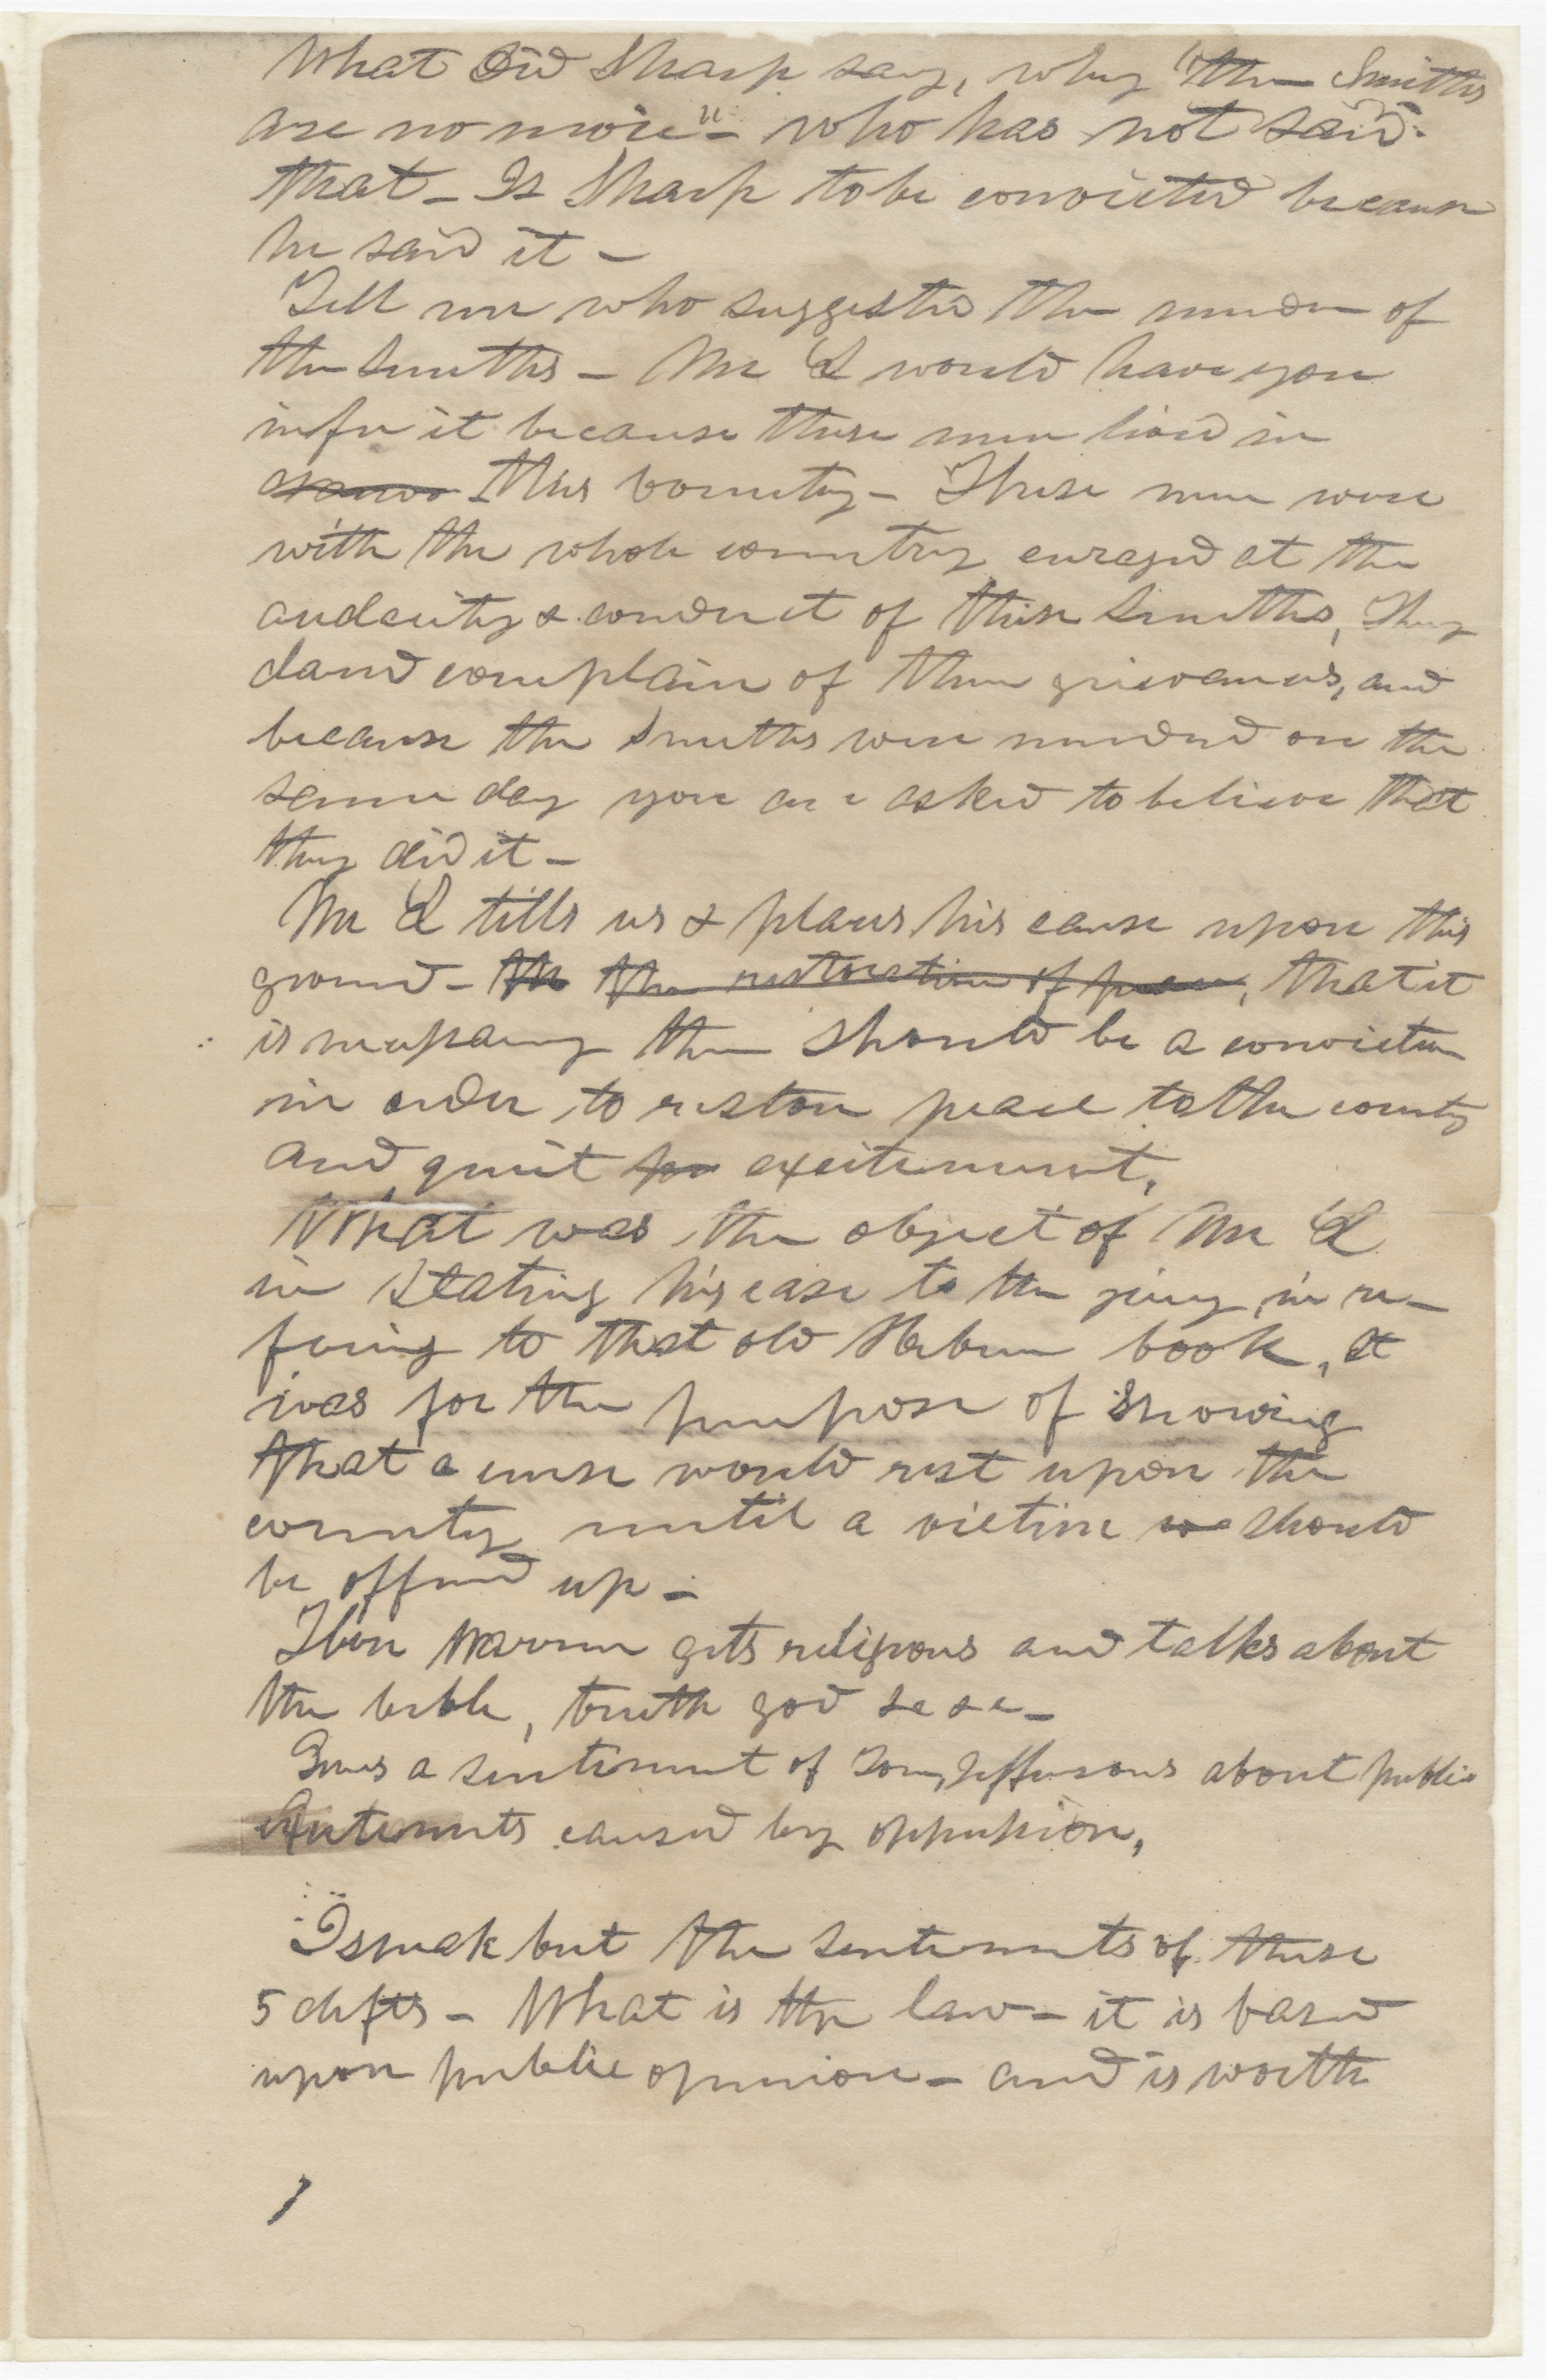 What did Sharp say, why "the Smiths
are no more" - who has not said
that - Is Sharp to be convicted because
he said it -
Tell me who suggested the murder of
the Smiths - Mr L would have you
infer it because these men lived in
this County - These men were
with the whole country enraged at the
audacity & conduct of these Smiths, They
dared complain of their grievances, and
because the Smiths were murdered on the
same day you are asked to believe that
they did it -
Mr L tells us & places his cause upon this
ground - the the restoration of peace, that it
is necessary there should be a conviction
in order to restore peace to the county
and quiet excitement,
What was the object of Mr L
in stating his case to the jury, in re-
fering to that old Hebrew book, It
was for the purpose of showing
that a curse would rest upon the
county until a victim should
be offered up -
Then Warren gets religious and talks about
the bible, truth god &c &c -
Gives a sentiment of Tom, Jeffersons about public
excitements caused by oppression,
I speak but the sentiments of these
5 defts - What is the law - it is based
upon public opinion - and is worth